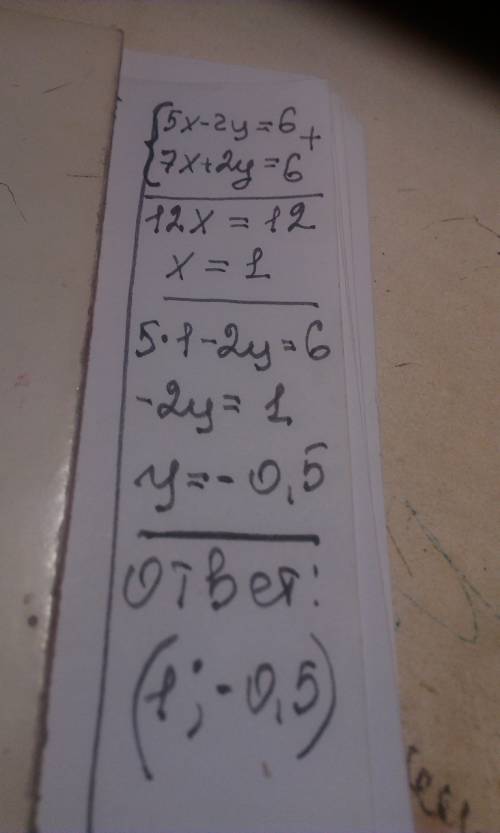 {5x-2y=6 +
7x+2y=6
12x = 12
x = 1
5·1-2y=6
-2y= 1
y=-0,5
Ответ:
(1;-0,5)